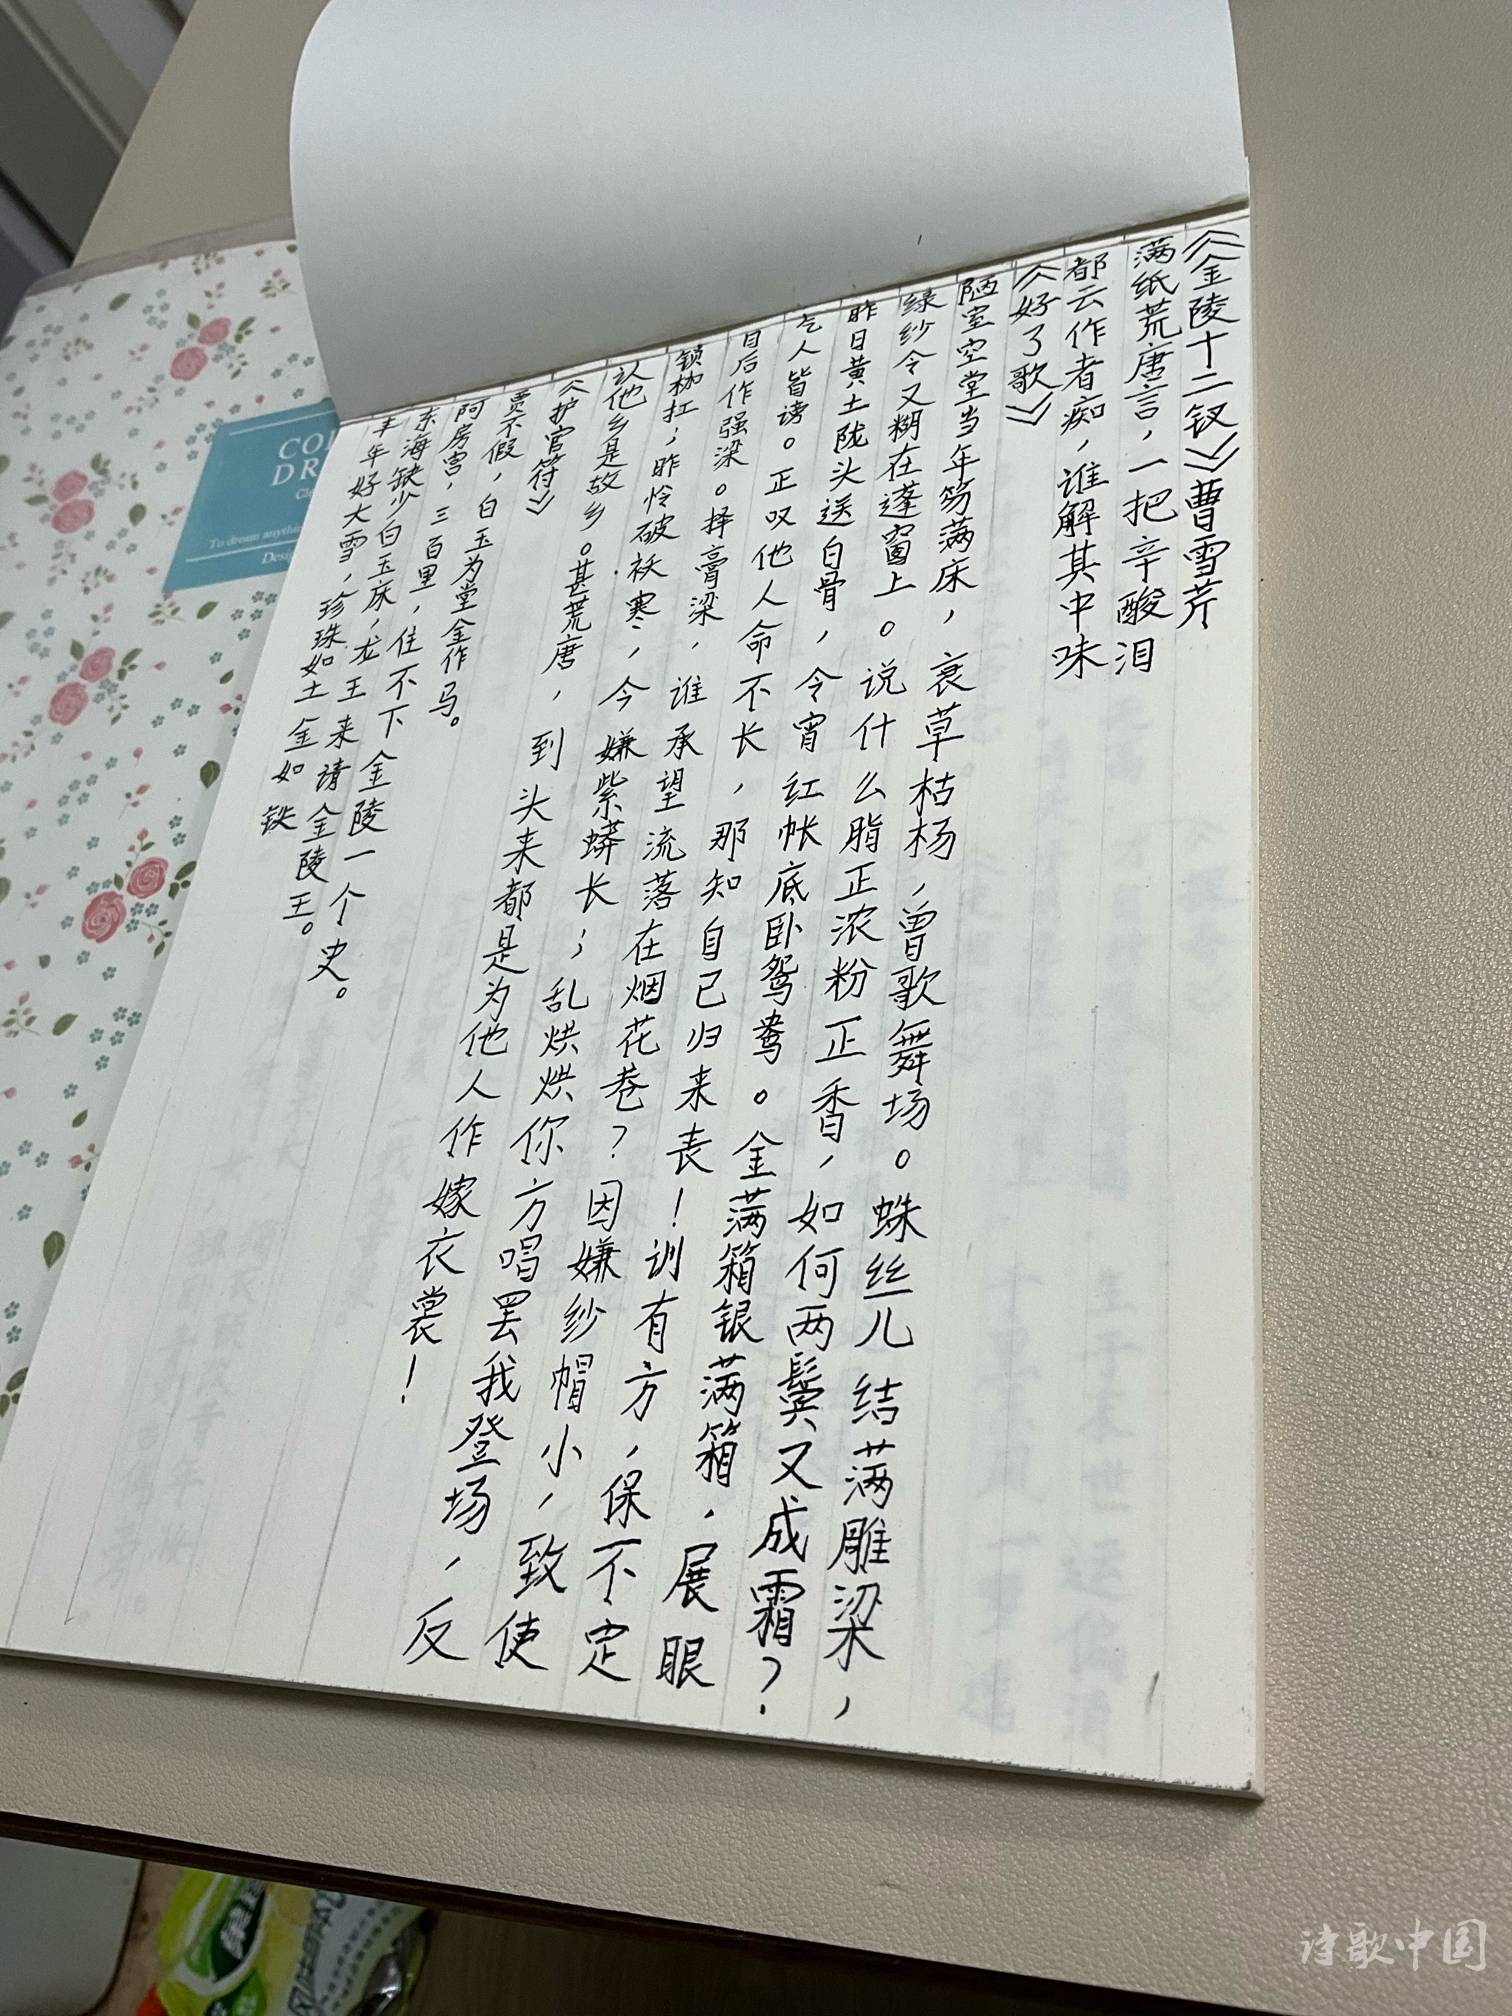 《金陵十二钗》曹雪芹
满纸荒唐言，一把辛酸泪
都云作者痴，谁解其中味
《好了歌》
陋室空堂当年笏满床，衰草枯杨，曾歌舞场。蛛丝儿结满雕梁，
绿纱令又糊在蓬窗上。说什么脂正浓粉正香，如何两鬓又成霜？
昨日黄土陇头送白骨，令宵红帐底卧鸳鸯。金满箱银满箱，展眼
乞人皆谤。正叹他人命不长，那知自己归来丧！训有方，保不定
日后作强梁。择膏粱，谁承望流落在烟花巷？因嫌纱帽小，致使
锁枷扛；昨怜破袄寒，今嫌紫蟒长；乱烘烘你方唱罢我登场，反
认他乡是故乡。甚荒唐，到头来都是为他人作嫁衣裳！
《护官符》
贾不假，白玉为堂金作马。
阿房宫，三百里，住不下金陵一个史。
东海缺少白玉床，龙王来请金陵王。
丰年好大雪，珍珠如土金如铁
To dream anything
诗歌中国